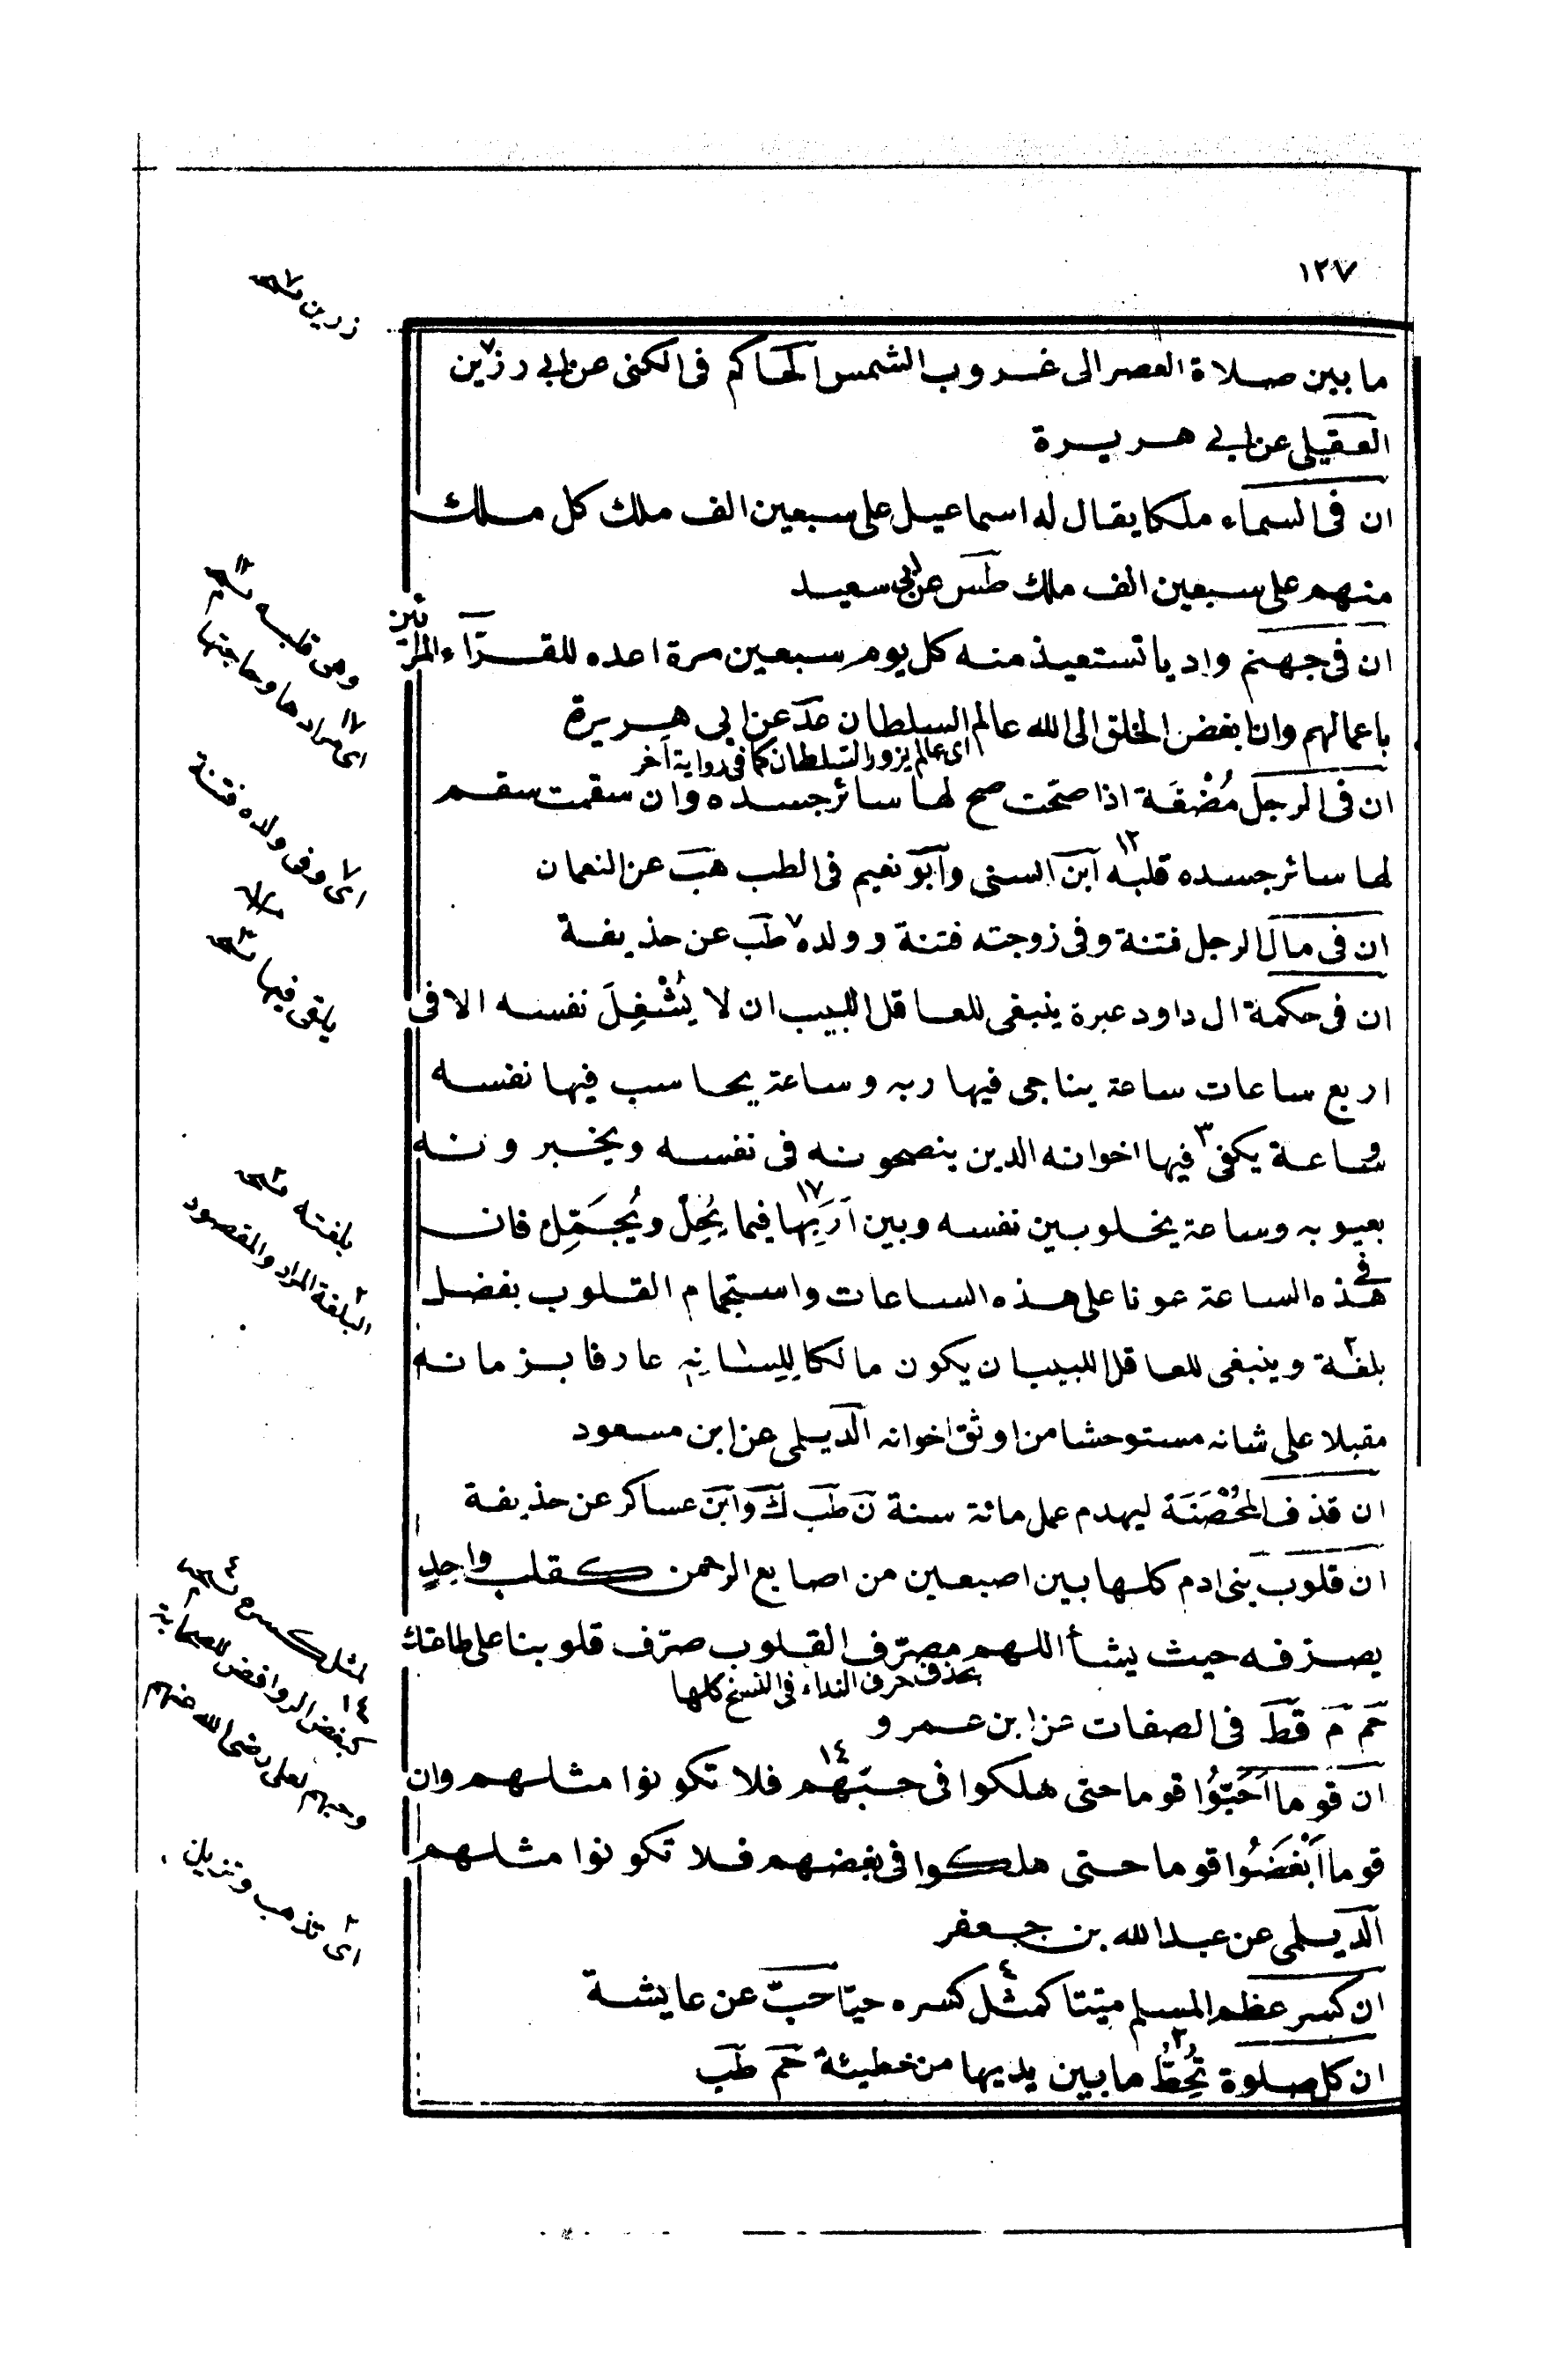 ١٢٧
ما بين صلاة العصر الى غروب الشمس الحاكم فى الكنى عن ابى رزين
العقيلى عن ابى هريرة
ان فى السماء ملكا يقال له اسماعيل على سبعين الف ملك كل ملك
منهم على سبعين الف ملك طس عن ابى سعيد
ان فى جهنم واديا تستعيذ منه كل يوم سبعين مرة اعده للقراء المرائين
باعمالهم وان ابغض الخلق الى الله عالم السلطان عد عن ابى هريرة
اى عالم يزور السلطان كما فى رواية اخر
ان فى الرجل مُضْغَة اذا صحّت صح لها سائر جسده وان سقمت سقم
لها سائر جسده قلبه ١٢ ابن السنى وابو نعيم فى الطب هب عن النعمان
ان فى مال الرجل فتنة وفى زوجته فتنة وولده ٧ طب عن حذيفة
ان فى حكمة ال داود عبرة ينبغى للعاقل اللبيب ان لا يُشْغِلَ نفسه الا فى
اربع ساعات ساعة يناجى فيها ربه وساعة يحاسب فيها نفسه
وساعة يكفى ٣ فيها اخوانه الدين ينصحونه فى نفسه ويخبرونه
بعيوبه وساعة يخلو بين نفسه وبين اَرَبِها ١٧ فيما يُحِلّ ويُجَمِّل فان
فى هذه الساعة عونا على هذه الساعات واستجمام القلوب بفضل
بلغة ٢ وينبغى للعاقل اللبيب ان يكون مالكا لِلِسَانِهِ عارفا بزمانه
مقبلا على شانه مستوحشا من اوثق اخوانه الديلمى عن ابن مسعود
ان قذف المُحْصَنَة ليهدم عمل مائة سنة ن طب ك وابن عساكر عن حذيفة
ان قلوب بنى ادم كلها بين اصبعين من اصابع الرحمن كقلب واحدٍ
يصرّفه حيث يشأ اللهم مصرّف القلوب صرّف قلوبنا على طاعتك
بحذف حرف النداء فى النسخ كلها
حم م قط فى الصفات عن ابن عمرو
ان قوما اَحَبُّوا قوما حتى هلكوا فى حبّهم ١٤ فلا تكونوا مثلهم وان
قوما اَبْغَضُوا قوما حتى هلكوا فى بغضهم فلا تكونوا مثلهم
الديلمى عن عبد الله بن جعفر
ان كسر عظم المسلم ميّتا كمثل ٤ كسره حيّا حبّ عن عايشة
ان كل صلوة تُحِطُّ ٢ ما بين يديها من خطيئة حم طب
زرين
وهى قلبه
١٧ اى مرادها وحاجتها
٧ اى وفى ولده فتنة
يلقى فيها
بلغته
٢ البلغة المراد والمقصود
لمثل كسره
١٤ كبغض الروافض للصحابة
وحبهم لعلى رضى الله عنهم
٢ اى تذهب وتزيل